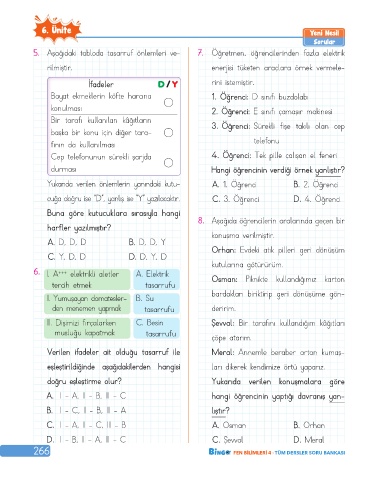 6. Ünite
Yeni Nesil
Sorular
5. Aşağıdaki tabloda tasarruf önlemleri ve-
rilmiştir.
İfadeler D / Y
Bayat ekmeklerin köfte harcına
konulması
Bir tarafı kullanılan kâğıtların
başka bir konu için diğer tara-
fının da kullanılması
Cep telefonunun sürekli şarjda
durması
Yukarıda verilen önlemlerin yanındaki kutu-
cuğa doğru ise "D", yanlış ise "Y" yazılacaktır.
Buna göre kutucuklara sırasıyla hangi
harfler yazılmıştır?
A. D, D, D B. D, D, Y
C. Y, D, D D. D, Y, D
6. I. A+++ elektrikli aletler
tercih etmek
A. Elektrik
tasarrufu
II. Yumuşayan domatesler-
den menemen yapmak
B. Su
tasarrufu
III. Dişimizi fırçalarken
musluğu kapatmak
C. Besin
tasarrufu
Verilen ifadeler ait olduğu tasarruf ile
eşleştirildiğinde aşağıdakilerden hangisi
doğru eşleştirme olur?
A. I - A, II - B, III - C
B. I - C, II - B, III - A
C. I - A, II - C, III - B
D. I - B, II - A, III - C
7. Öğretmen, öğrencilerinden fazla elektrik
enerjisi tüketen araçlara örnek vermele-
rini istemiştir.
1. Öğrenci: D sınıfı buzdolabı
2. Öğrenci: E sınıfı çamaşır makinesi
3. Öğrenci: Sürekli fişe takılı olan cep
telefonu
4. Öğrenci: Tek pille çalışan el feneri
Hangi öğrencinin verdiği örnek yanlıştır?
A. 1. Öğrenci B. 2. Öğrenci
C. 3. Öğrenci D. 4. Öğrenci
8. Aşağıda öğrencilerin aralarında geçen bir
konuşma verilmiştir.
Orhan: Evdeki atık pilleri geri dönüşüm
kutularına götürürüm.
Osman: Piknikte kullandığımız karton
bardakları biriktirip geri dönüşüme gön-
deririm.
Şevval: Bir tarafını kullandığım kâğıtları
çöpe atarım.
Meral: Annemle beraber artan kumaş-
ları dikerek kendimize örtü yaparız.
Yukarıda verilen konuşmalara göre
hangi öğrencinin yaptığı davranış yan-
lıştır?
A. Osman B. Orhan
C. Şevval D. Meral
266
BİNGO FEN BİLİMLERİ 4 - TÜM DERSLER SORU BANKASI